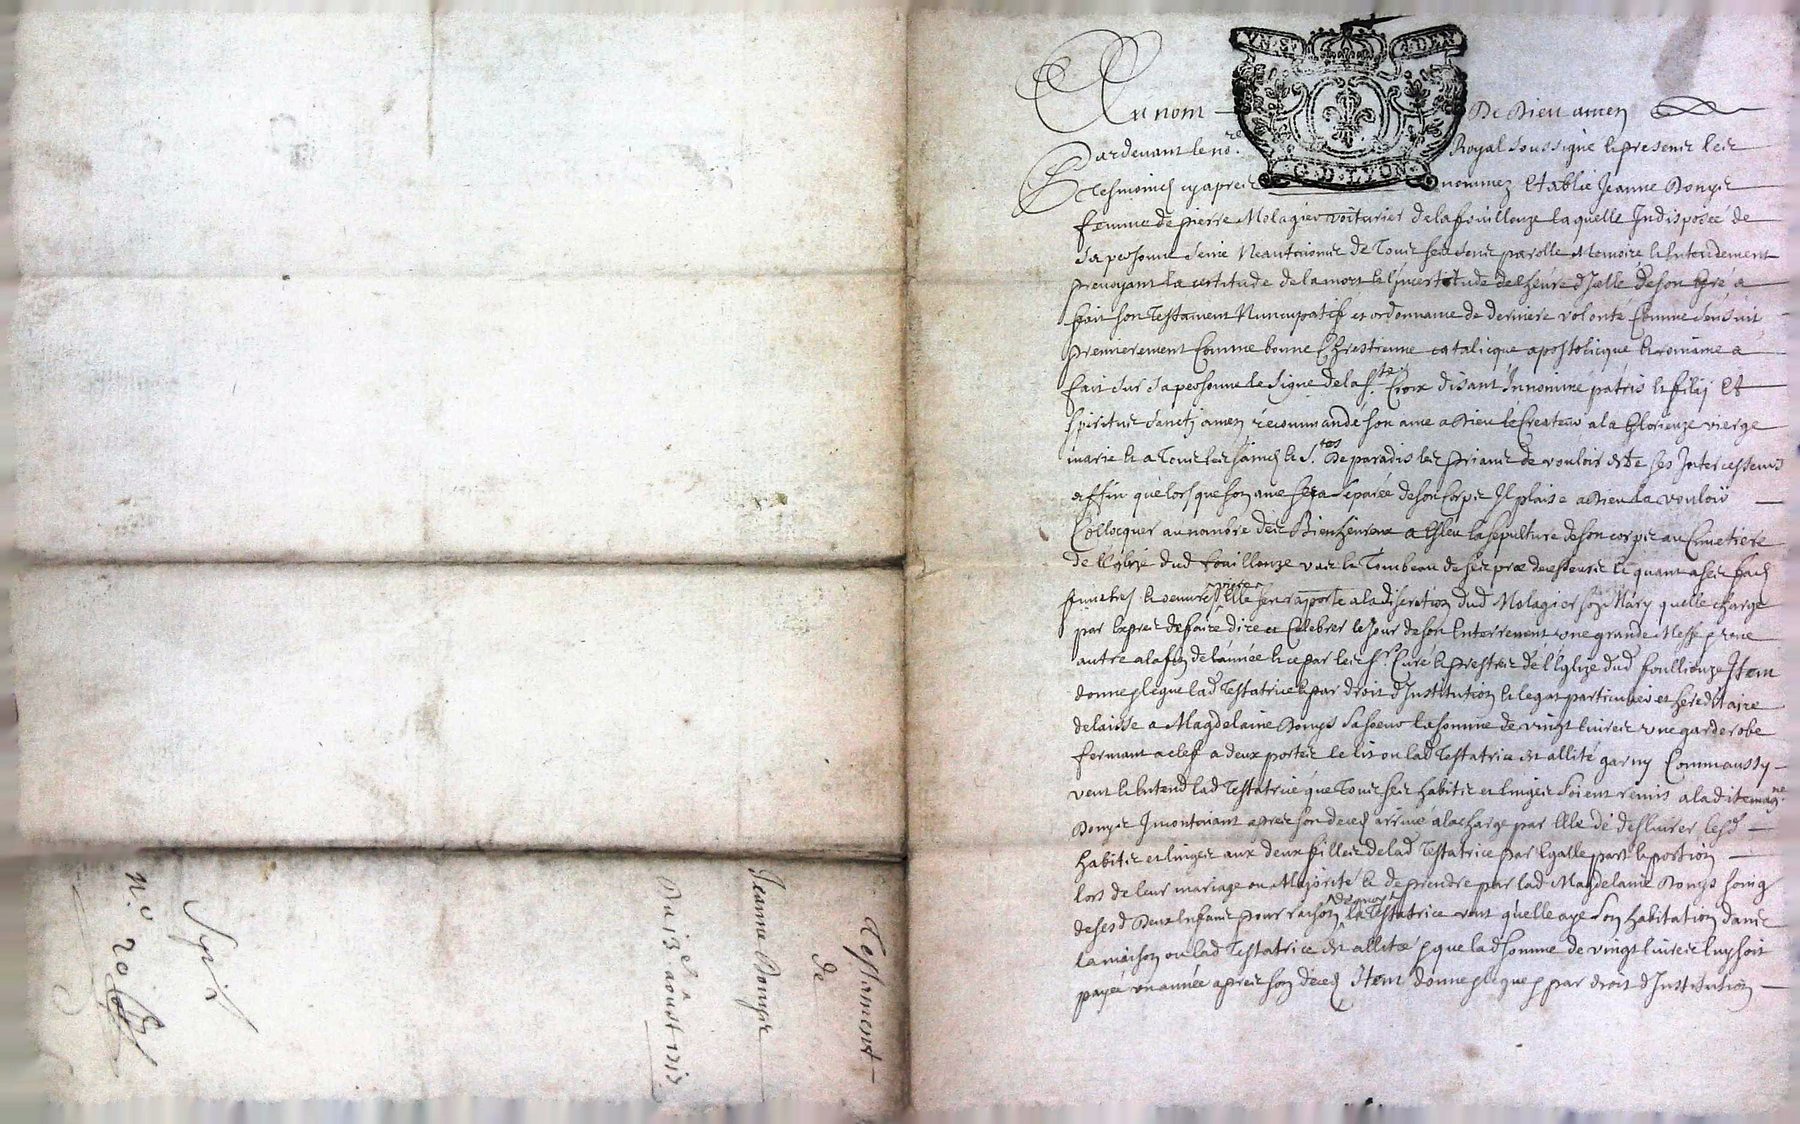 Testament
de
Jeanne Bonyie
Du 13e aoust 1713
VN SOL
2 DEN
G. D. LYON
Au nom De Dieu amen
Pardevant le nore Royal soussigné & presents les
tesmoins cy apres nommez establie Jeanne
femme de pierre Molagier voiturier de la fouillouze laquelle Indisposée de
sa personne saine Neantmoins de tous ses sens parolle Memoire & Entendement
prevoyant la certitude de la mort & l'incertitude de l'heure d'Icelle de son gré a
fait son testament Nuncupatif et ordonnance de derniere volonté Comme sensuit
premierement Comme bonne Chrestienne catalicque apostolicque & romaine a
fait sur sa personne le signe de la ste Croix disant Innomine patris & filij Et
spiritus sancti amen recommandé son ame a Dieu le Createur a la Glorieuze vierge
marie & a tous les saincts & stes De paradis les priant de vouloir estre ses Intercesseurs
affin que lors que son ame sera separée de son corps Il plaise a Dieu la vouloir
Collocquer au nombre des Bienheureux a Esleu la sepulture de son corps au Cimetiere
de l'Eglize dud fouillouze vas & tombeau de ses predecesseurs & quant a ses frais
funebres & oeuvres pies Elle sen rapporte a la discretion dud Molagier son Mary quelle charge
par Expres de faire dire et Celebrer le Jour de son Enterrement une grande Messe & une
autre a la fin de l'année & ce par les srs Curé & prestres de l'Eglize dud foullouze Item
donne & legue lad testatrice & par droit d'Institution & legat particulier et hereditaire
delaisse a Magdelaine sa soeur la somme de vingt livres une garderobe
fermant a clef a deux portes le lit ou lad testatrice est allité garny Comm aussy
veut & Entend lad testatrice que tous ses habits et linges soient remis a la dite magne
Incontenant apres son deces arrivé a la charge par Elle de deslivrer lesd
habits et linges aux deux filles de lad testatrice par Egalle part & portion
lors de leur mariage ou Majorité & de prendre par lad Magdelaine soing
desesd Deux Enfans pour raison dequoy la testatrice veut quelle aye son habitation dans
la maison ou lad testatrice est allitée & que lad somme de vingt livres luy soit
payée un année apres son deces Item donne & legue & par droit d'Institution